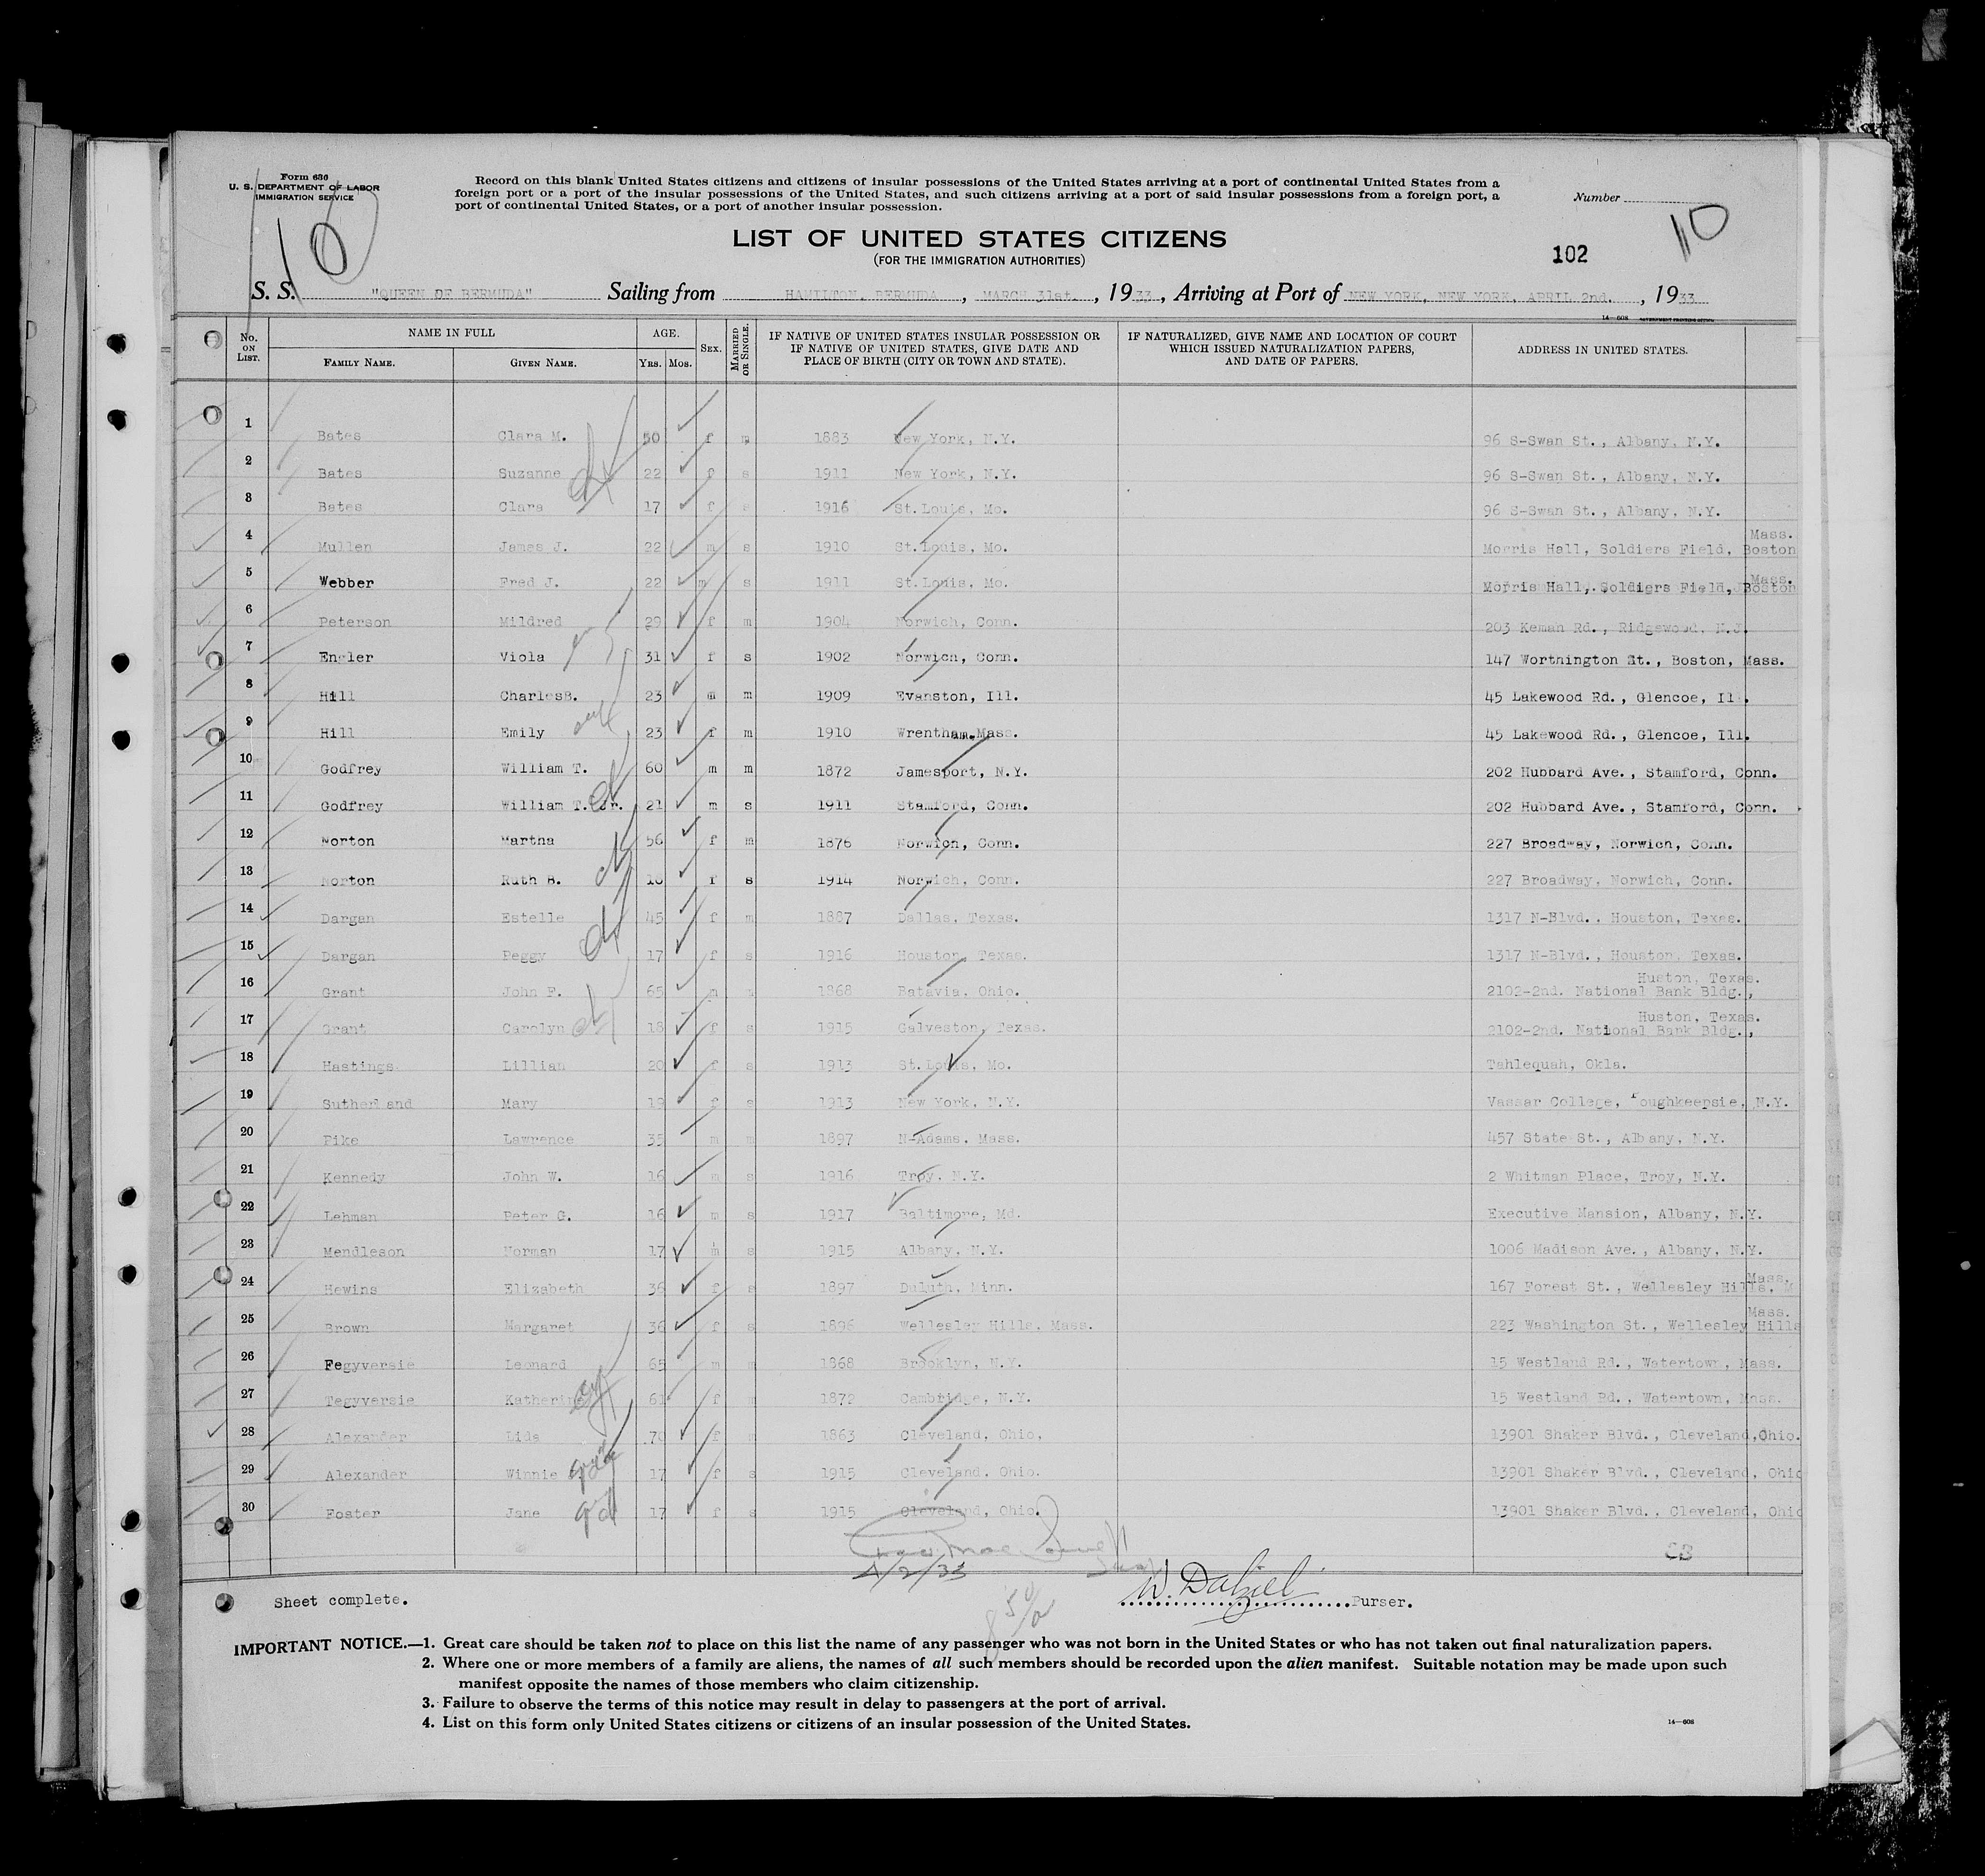 Form 630
U. S. DEPARTMENT OF LABOR
IMMIGRATION SERVICE
Record on this blank United States citizens and citizens of insular possessions of the United States arriving at a port of continental United States from a
foreign port or a port of the insular possessions of the United States, and such citizens arriving at a port of said insular possessions from a foreign port, a
port of continental United States, or a port of another insular possession.
Number
10
110
LIST OF UNITED STATES CITIZENS
(FOR THE IMMIGRATION AUTHORITIES)
102
S. S. "QUEEN OF BERMUDA" Sailing from HAMILTON, BERMUDA, MARCH 31st., 1933, Arriving at Port of NEW YORK, NEW YORK, APRIL 2nd., 1933
14—608 GOVERNMENT PRINTING OFFICE
No. ON LIST. NAME IN FULL FAMILY NAME. GIVEN NAME. AGE. YRS. MOS. SEX. MARRIED OR SINGLE. IF NATIVE OF UNITED STATES INSULAR POSSESSION OR IF NATIVE OF UNITED STATES, GIVE DATE AND PLACE OF BIRTH (CITY OR TOWN AND STATE). IF NATURALIZED, GIVE NAME AND LOCATION OF COURT WHICH ISSUED NATURALIZATION PAPERS, AND DATE OF PAPERS. ADDRESS IN UNITED STATES.
1 Bates Clara M. 50 f m 1883 New York, N.Y. 96 S-Swan St., Albany, N.Y.
2 Bates Suzanne 22 f s 1911 New York, N.Y. 96 S-Swan St., Albany, N.Y.
3 Bates Clara 17 f s 1916 St.Louis, Mo. 96 S-Swan St., Albany, N.Y.
4 Mullen James J. 22 m s 1910 St.Louis, Mo. Morris Hall, Soldiers Field, Boston Mass.
5 Webber Fred J. 22 m s 1911 St.Louis, Mo. Morris Hall, Soldiers Field, Boston Mass.
6 Peterson Mildred 29 f m 1904 Norwich, Conn. 203 Keman Rd., Ridgewood, N.J.
7 Engler Viola 31 f s 1902 Norwich, Conn. 147 Worthington St., Boston, Mass.
8 Hill CharlesB. 23 m m 1909 Evanston, Ill. 45 Lakewood Rd., Glencoe, Ill.
9 Hill Emily 23 f m 1910 Wrentham, Mass. 45 Lakewood Rd., Glencoe, Ill.
10 Godfrey William T. 60 m m 1872 Jamesport, N.Y. 202 Hubbard Ave., Stamford, Conn.
11 Godfrey William T. Jr. 21 m s 1911 Stamford, Conn. 202 Hubbard Ave., Stamford, Conn.
12 Norton Martha 56 f m 1876 Norwich, Conn. 227 Broadway, Norwich, Conn.
13 Norton Ruth B. 18 f s 1914 Norwich, Conn. 227 Broadway, Norwich, Conn.
14 Dargan Estelle 45 f m 1887 Dallas, Texas. 1317 N-Blvd., Houston, Texas.
15 Dargan Peggy 17 f s 1916 Houston, Texas. 1317 N-Blvd., Houston, Texas.
16 Grant John F. 65 m m 1868 Batavia, Ohio. 2102-2nd. National Bank Bldg., Huston, Texas.
17 Grant Carolyn 18 f s 1915 Galveston, Texas. 2102-2nd. National Bank Bldg., Huston, Texas.
18 Hastings Lillian 20 f s 1913 St.Louis, Mo. Tahlequah, Okla.
19 Sutherland Mary 19 f s 1913 New York, N.Y. Vassar College, Poughkeepsie, N.Y.
20 Pike Lawrence 35 m m 1897 N-Adams, Mass. 457 State St., Albany, N.Y.
21 Kennedy John W. 16 m s 1916 Troy, N.Y. 2 Whitman Place, Troy, N.Y.
22 Lehman Peter G. 16 m s 1917 Baltimore, Md. Executive Mansion, Albany, N.Y.
23 Mendleson Norman 17 m s 1915 Albany, N.Y. 1006 Madison Ave., Albany, N.Y.
24 Hewins Elizabeth 36 f s 1897 Duluth, Minn. 167 Forest St., Wellesley Hills, M Mass.
25 Brown Margaret 36 f s 1896 Wellesley Hills, Mass. 223 Washington St., Wellesley Hills Mass.
26 Fegyversie Leonard 65 m m 1868 Brooklyn, N.Y. 15 Westland Rd., Watertown, Mass.
27 Tegyversie Katherine 61 f m 1872 Cambridge, N.Y. 15 Westland Rd., Watertown, Mass.
28 Alexander Lida 70 f m 1863 Cleveland, Ohio. 13901 Shaker Blvd., Cleveland, Ohio.
29 Alexander Winnie 17 f s 1915 Cleveland, Ohio. 13901 Shaker Blvd., Cleveland, Ohio
30 Foster Jane 17 f s 1915 Cleveland, Ohio. 13901 Shaker Blvd., Cleveland, Ohio
4/2/33
Sheet complete.
W. Dalziel Purser.
IMPORTANT NOTICE.—1. Great care should be taken not to place on this list the name of any passenger who was not born in the United States or who has not taken out final naturalization papers.
2. Where one or more members of a family are aliens, the names of all such members should be recorded upon the alien manifest. Suitable notation may be made upon such
manifest opposite the names of those members who claim citizenship.
3. Failure to observe the terms of this notice may result in delay to passengers at the port of arrival.
4. List on this form only United States citizens or citizens of an insular possession of the United States.
14—608